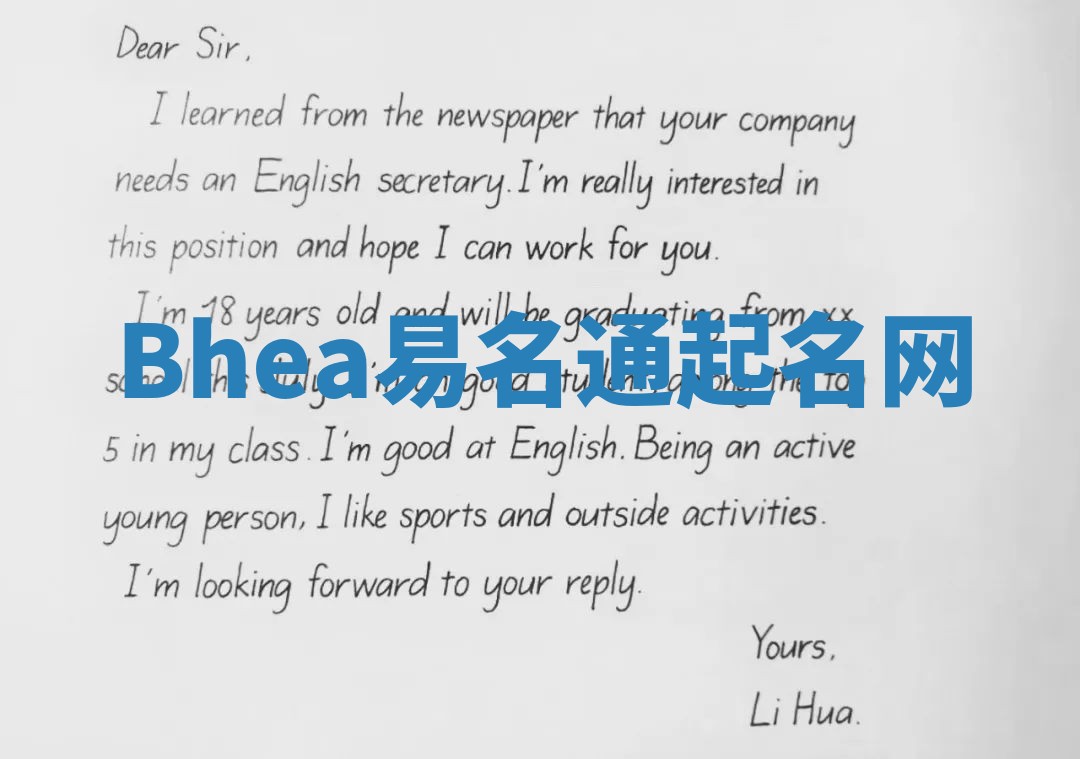 Dear Sir,
I learned from the newspaper that your company
needs an English secretary. I'm really interested in
this position and hope I can work for you.
I'm 18 years old and will be graduating from xx
Bhea易名通起名网
school this July. I'm a good student, among the top
5 in my class. I'm good at English. Being an active
young person, I like sports and outside activities.
I'm looking forward to your reply.
Yours,
Li Hua.